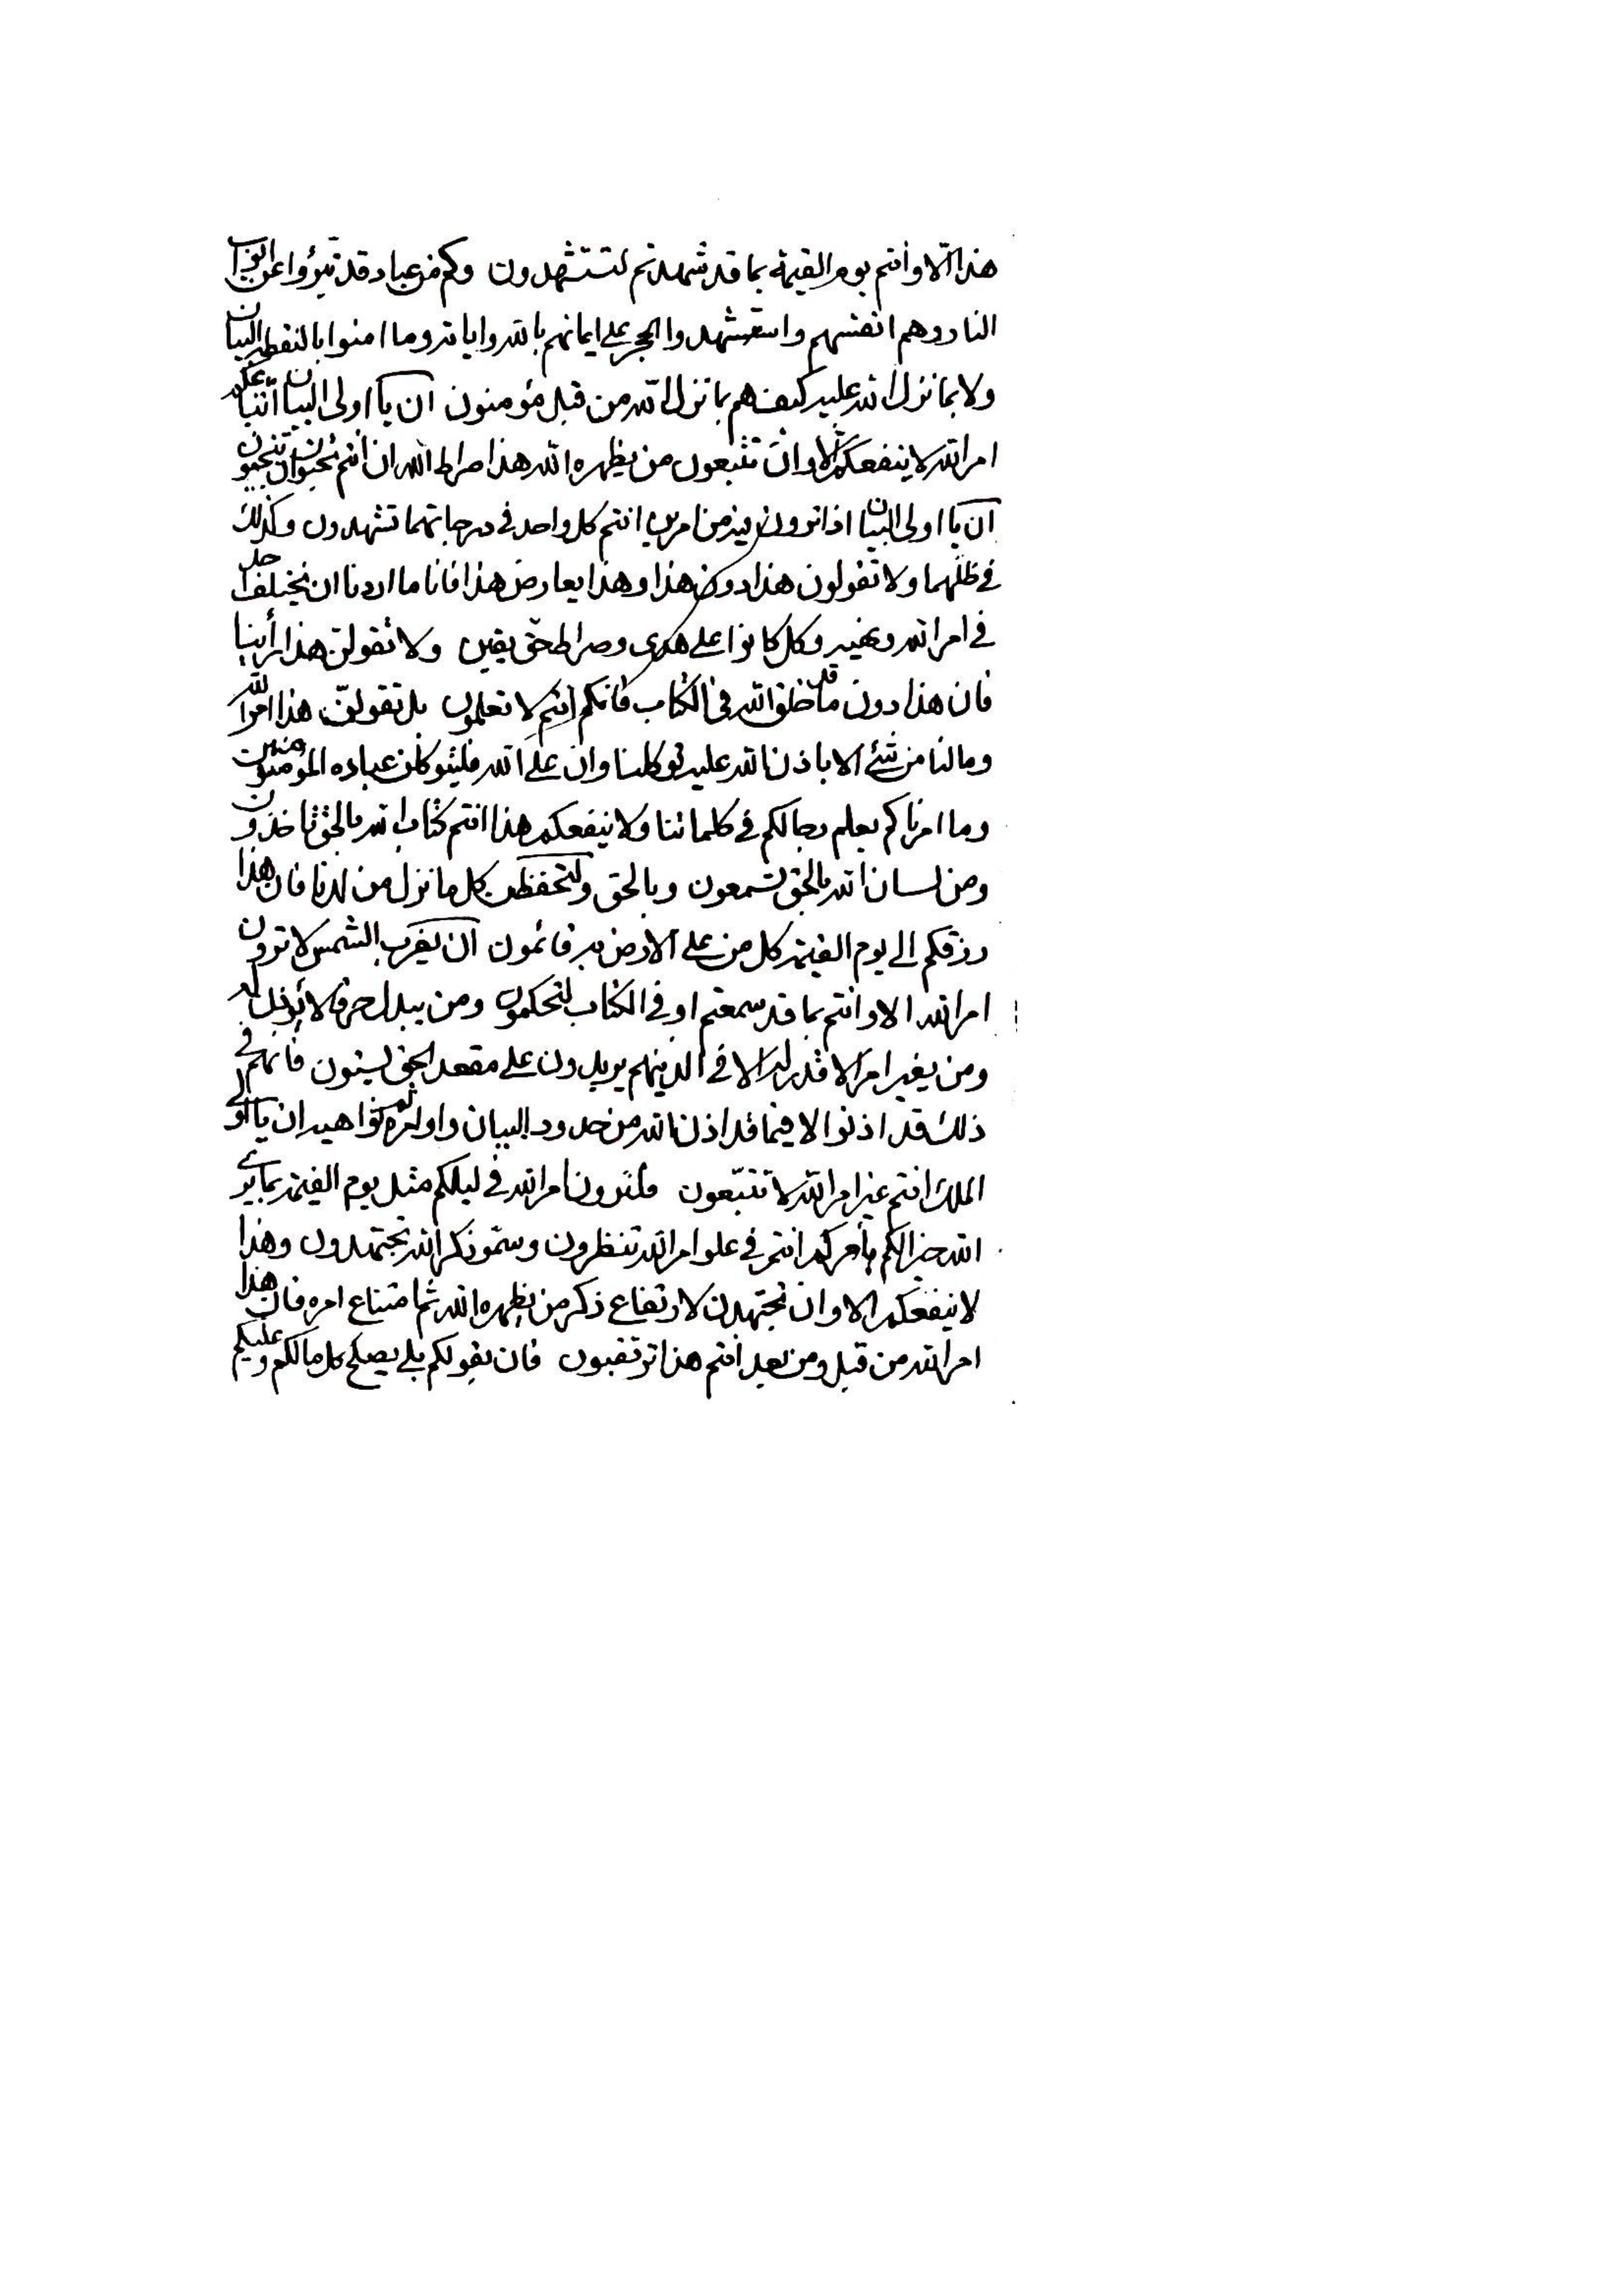 هذا الا وأنتم يوم القيمة بما قد شهدتم لتستشهدون وكم من عباد قد تبرؤا عن ابواب
النار وهم انفسهم واستشهدوا الحجر على ايمانهم بالله واياته وما امنوا بالنقطة البيان
ولا بما نزل الله عليه كيف هم بما نزل الله من قبل مؤمنون ان يا اولى البيان
امر الله لا ينفعكم الا وان تتبعون من يظهره الله هذا صراط الله ان انتم تحبون ان تنجيون
ان يا اولى البيان اذا ترون من امرين انتم كل واحد فى درجاتهما تشهدون وكذلك
فى ظلهما ولا تقولون هذا دون هذا وهذا يعارض هذا فانا ما اردنا ان يختلف احد
فى امر الله ونهيه وكل كانوا على هدى وصراط حق يقين ولا تقولن هذا برأينا
فان هذا دون ما قد خلق الله فى الكتاب فانكم انتم لا تعلمون بل تقولن هذا امر الله
وما لنا من شئ الا باذن الله عليه توكلنا وان على الله فليتوكلن عباده المؤمنون
وما امرناكم بعلم رجالكم فى كلماتنا ولا ينفعكم هذا انتم كتاب الله بالحق تاخذون
ومن لسان الله بالحق تسمعون وبالحق ولتحفظن كل ما نزل من لدنا فان هذا
رزقكم الى يوم القيمة كل من على الارض به قائمون ان يغرب الشمس لا ترون
امر الله الا وانتم بما قد سمعتم او فى الكتاب لتحكمون ومن يبدل حرفا لا يؤذن له
ومن يغير امرا لا قدر له الا فى الذينهم يريدون على مقعد الحق ليستون فانهم فى
ذلك قد اذنوا الا فيما قد اذن الله من حدود البيان واوامره ونواهيه ان يا اولى
الملك انتم غير امر الله لا تتبعون فلترون امر الله فى ليلكم مثل يوم القيمة بما يرى
الله خيرا لكم يأمركم انتم فى علو امر الله تنظرون وسمو ذكر الله تجتهدون وهذا
لا ينفعكم الا وان تجتهدن لارتفاع ذكر من يظهره الله ثم امتناع امره فان هذا
امر الله من قبل ومن بعد انتم هذا ترتقبون فان بقولكم بلى يصلح كل ما لكم وعليكم